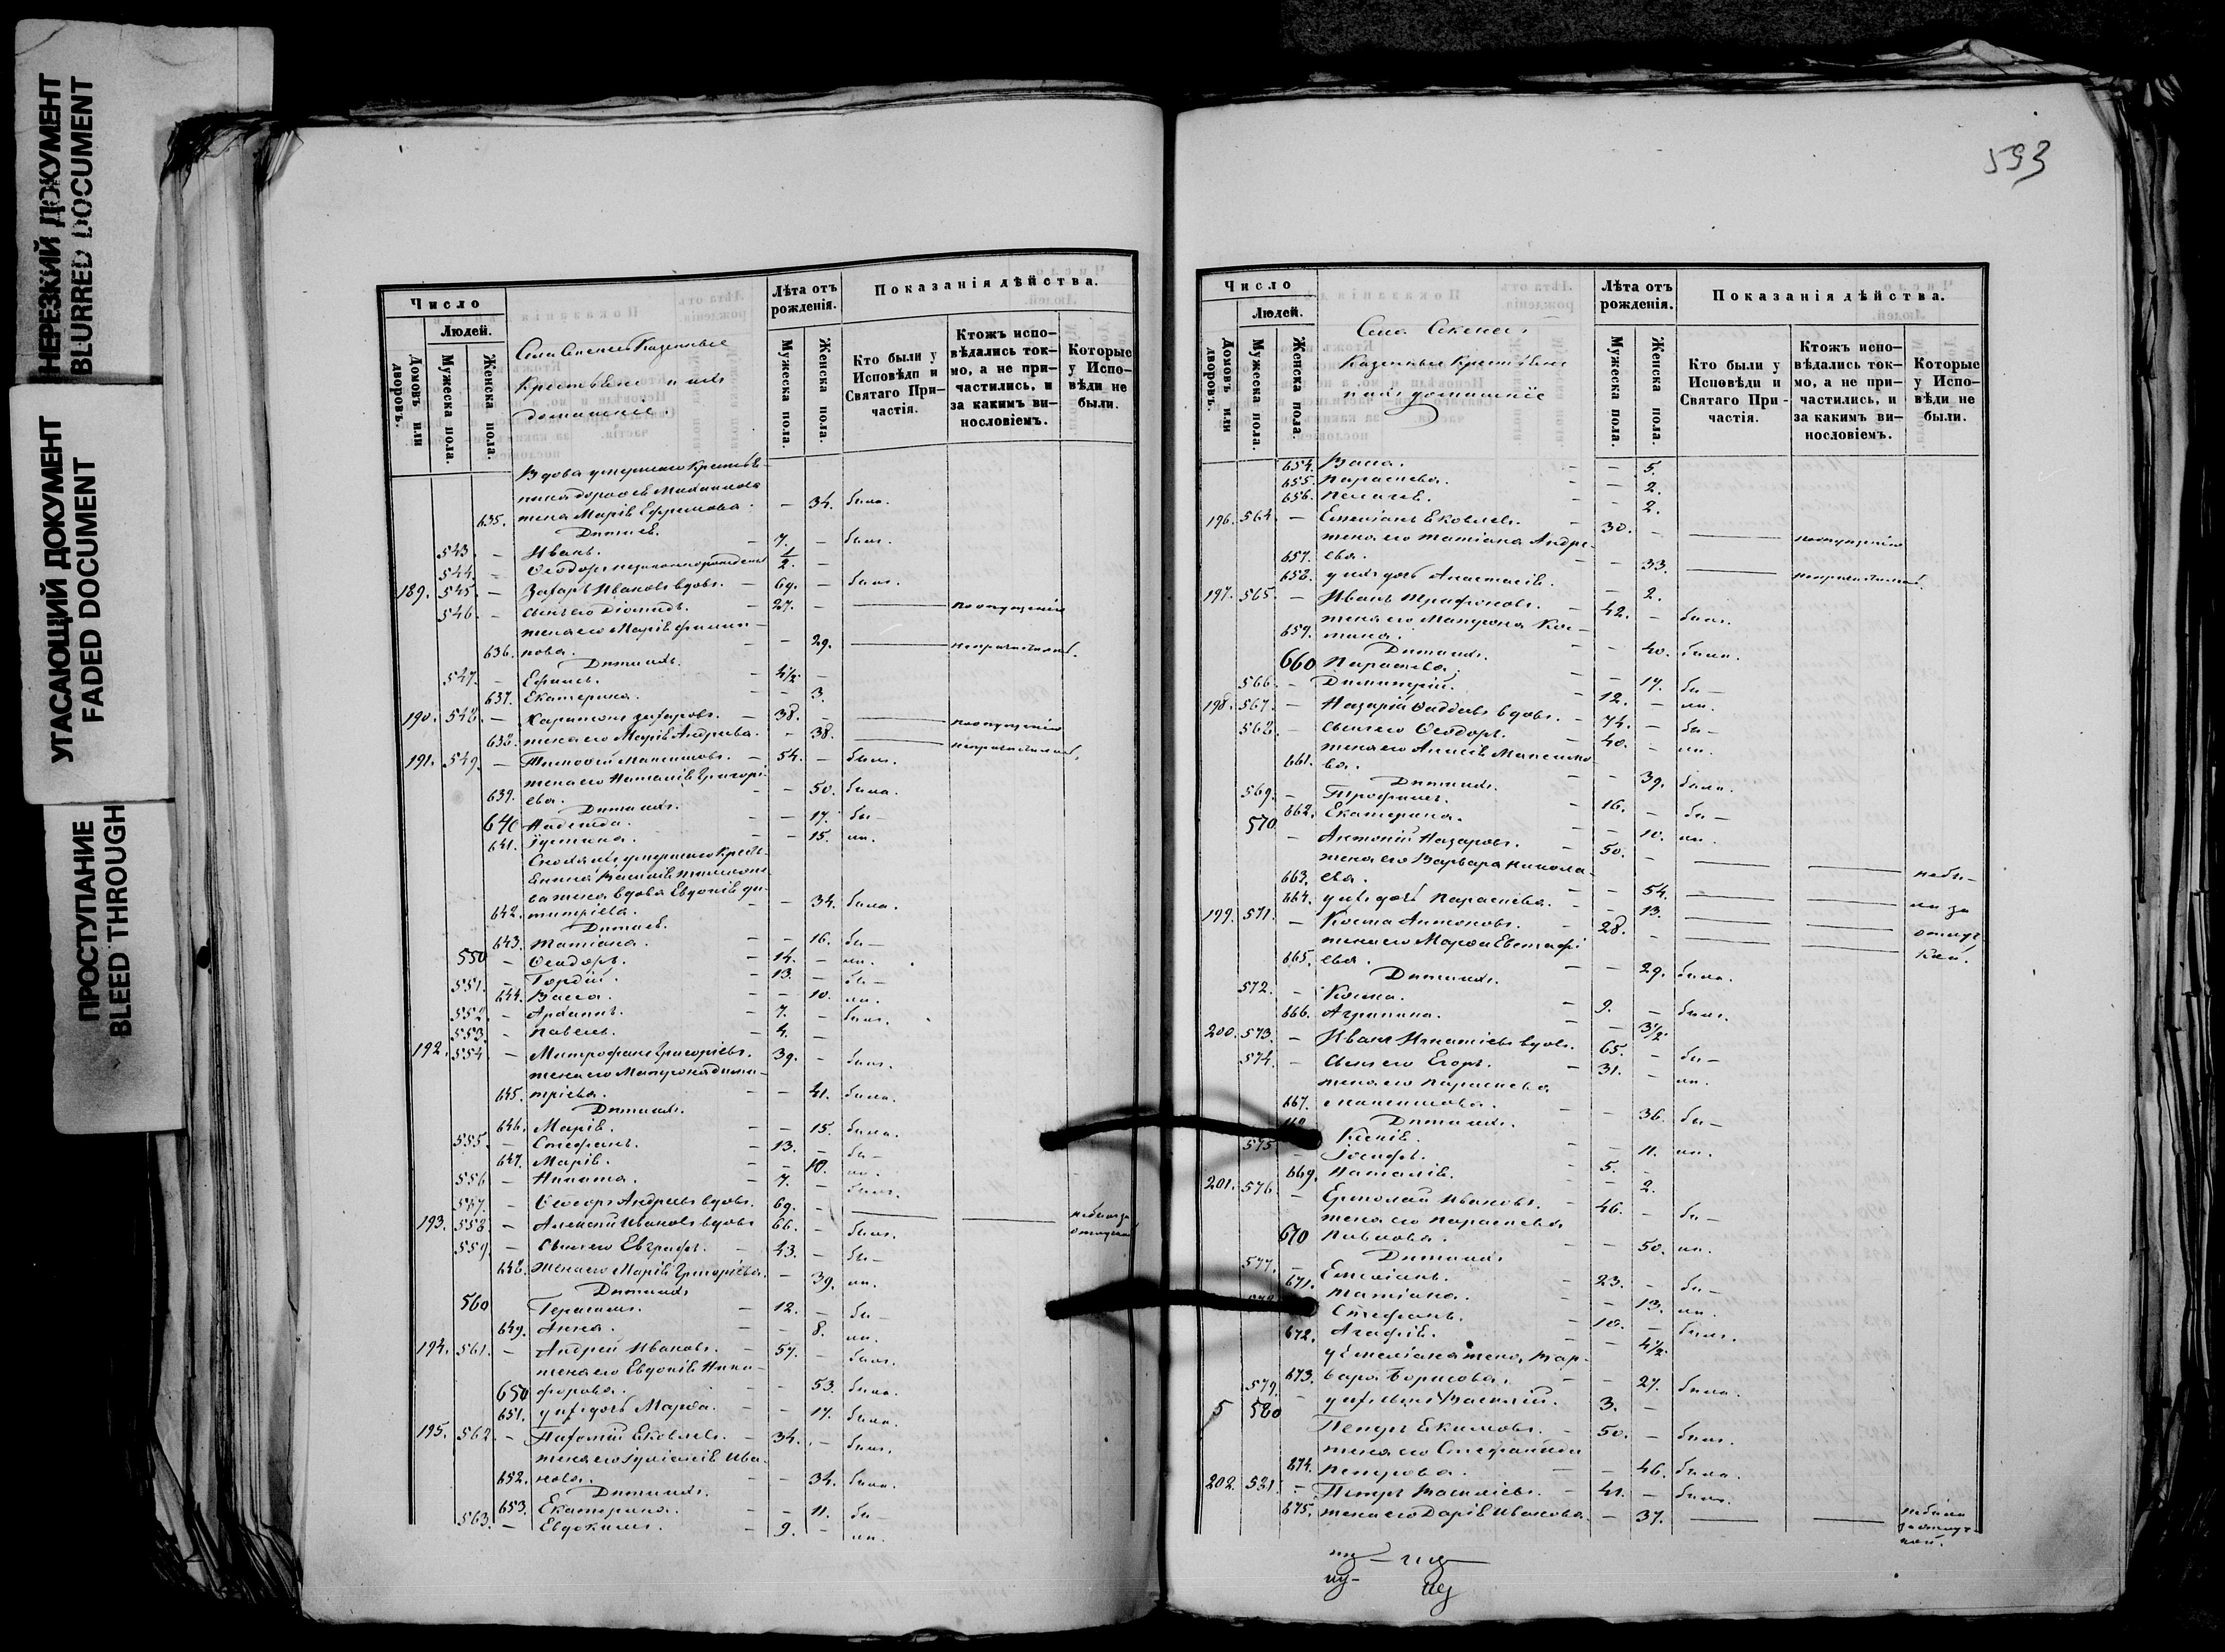 НЕРЕЗКИЙ ДОКУМЕНТ
BLURRED DOCUMENT
УГАСАЮЩИЙ ДОКУМЕНТ
FADED DOCUMENT
ПРОСТУПАНИЕ
BLEED THROUGH
Число
Людей.
Домовъ или дворовъ.
Мужеска пола.
Женска пола.
Села Казенные
Крестьяне и ихъ
домашніе.
Лѣта отъ рожденія.
Мужеска пола.
Женска пола.
Показанія дѣйства.
Кто были у Исповѣди и Святаго Причастія.
Ктожъ исповѣдались токмо, а не причастились, и за какимъ винословіемъ.
Которые у Исповѣди не были.
Вдова умершаго Крестья-
нина Михаилова
635. жена Марія Ефремова. - - 34. была.
Дѣти ея.
543. - Иванъ. - 7. - былъ.
544. - Ѳеодоръ 1/2. -
189. 545. - Захаръ Ивановъ вдовъ. - 69. - былъ.
546. - сынъ его Діомидъ. - 27. - — по опущенію
жена его Марія Филип-
636. пова. - - 29. — непричастилась.
Дѣти ихъ.
547. - Ефимъ. - 4 1/2 -
637. Екатерина. - - 3.
190. 548. - Харитонъ Захаровъ. - 38. - — по опущенію
638. жена его Марія Андреева. - 38. — непричастились.
191. 549. - Тимофей Максимовъ. - 54. - былъ.
жена его Наталія Григорі-
639. ева. - - 50. была.
Дѣти ихъ.
640 Надежда. - - 17. бы-
641. Іустина. - - 15. ли.
Сноха ихъ умершаго Крест-
янина Василія
ва жена вдова Евдокія Ди-
642. митріева. - - 34. была.
Дѣти ея.
643. Татіана. - - 16. бы-
550 - Ѳеодоръ. - 14. - ли.
551. - Гордій. - 13. - бы-
644. Васса. - - 10. ли.
552. - Архипъ. - 7. - былъ.
553. - Павелъ. - 4. -
192. 554. - Митрофанъ Григорьевъ. 39. - былъ.
жена его Матрона Дими-
645. тріева. - - 41. была.
Дѣти ихъ.
646. Марія. - - 15. была.
555. - Стефанъ. - 13. - бы-
647. Марія. - - 10. ли.
556 - Никита. - 7. - былъ.
557. - Ѳеодоръ Андреевъ вдовъ. 69. - — — небылъ за
193. 558. - Алексій Ивановъ вдовъ 66. - былъ. отлучкой
559. - Сынъ его Евграфъ. - 43. - бы-
648. Жена его Марія Григоріева. - 39. ли.
Дѣти ихъ
560 Герасимъ. - 12. - бы-
649. Анна. - - 8. ли.
194. 561. - Андрей Ивановъ. - 57. - былъ.
жена его Евдокія Ники-
650 форова. - - 53. была.
651. у нихъ дочь Марѳа. - - 17. была.
195. 562. - Пахомій Яковлевъ. - 34. - былъ.
жена его Іуліанія Ива-
652. нова. - - 34. была.
Дѣти ихъ.
653. Екатерина. - - 11. бы-
563. - Евдокимъ. - 9. - ли.
593
Число
Людей.
Домовъ или дворовъ.
Мужеска пола.
Женска пола.
Села
Казенные Крестьяне
и ихъ домашніе
Лѣта отъ рожденія.
Мужеска пола.
Женска пола.
Показанія дѣйства.
Кто были у Исповѣди и Святаго Причастія.
Ктожъ исповѣдались токмо, а не причастились, и за какимъ винословіемъ.
Которые у Исповѣди не были.
654. Васса. - - 5.
655. Параскева. - - 2.
656. Пелагея. - - 2.
196. 564. - Емеліанъ Яковлевъ. - 30. - — по опущенію
жена его Татіана Андре-
657. ева. - - 33. — непричастились.
658. у нихъ дочь Анастасія. - - 2.
197. 565. - Иванъ Трифоновъ. - 42. - былъ.
жена его Матрона Кос-
659. мина. - - 40. была.
Дѣти ихъ.
660 Параскева. - - 17. бы-
566. - Димитрій. - 12. - ли.
198. 567. - Назарій Ѳаддеевъ вдовъ. - 74. - бы-
568. - сынъ его Ѳеодоръ. - 40. - ли.
жена его Анисія Максимо-
661. ва. - - 39. была.
Дѣти ихъ.
569. - Трофимъ. - 16. - бы-
662. Екатерина. - - 10. ли.
570 - Антоній Назаровъ. - 50. - — — небы-
жена его Варвара Никола-
663. ева. - - 54. — — ли за
664. у нихъ дочь Параскева. - - 13. — — отлуч-
199. 571. - Косма Антоновъ. - 28. - — — кой.
жена его Марѳа Евстафі-
665. ева. - - 29. была.
Дѣти ихъ.
572. - Косма. - 9. - былъ.
666. Агрипина. - - 3 1/2
200. 573. - Иванъ Игнатіевъ вдовъ. 65. - бы-
574. - Сынъ его Егоръ. - 31. - ли.
жена его Параскева
667. Максимова. - - 36. бы-
Дѣти ихъ.
Ксенія. - - 11. ли.
575 - Іосифъ. - 5. -
669. Наталія. - - 2.
201. 576. - Ермолай Ивановъ. - 46. - бы-
жена его Параскева
670 Павлова. - - 50. ли.
Дѣти ихъ
577. - Емеліанъ. - 23. - бы-
671. Татіана. - - 13. ли.
Стефанъ. - 10. - былъ.
672. Агафія. - - 4 1/2
у Емеліана жена Вар-
673. вара Борисова. - - 27. была.
579. - у нихъ сынъ Василій. 3. -
5 580 Петръ Екимовъ. - 50. - былъ.
жена его Стефанида
674. Петрова. - - 46. была.
202. 581. - Петръ Василіевъ. - 41. - былъ.
675. жена его Дарія Иванова. - 37. — — небыла
за отлуч-
кой.